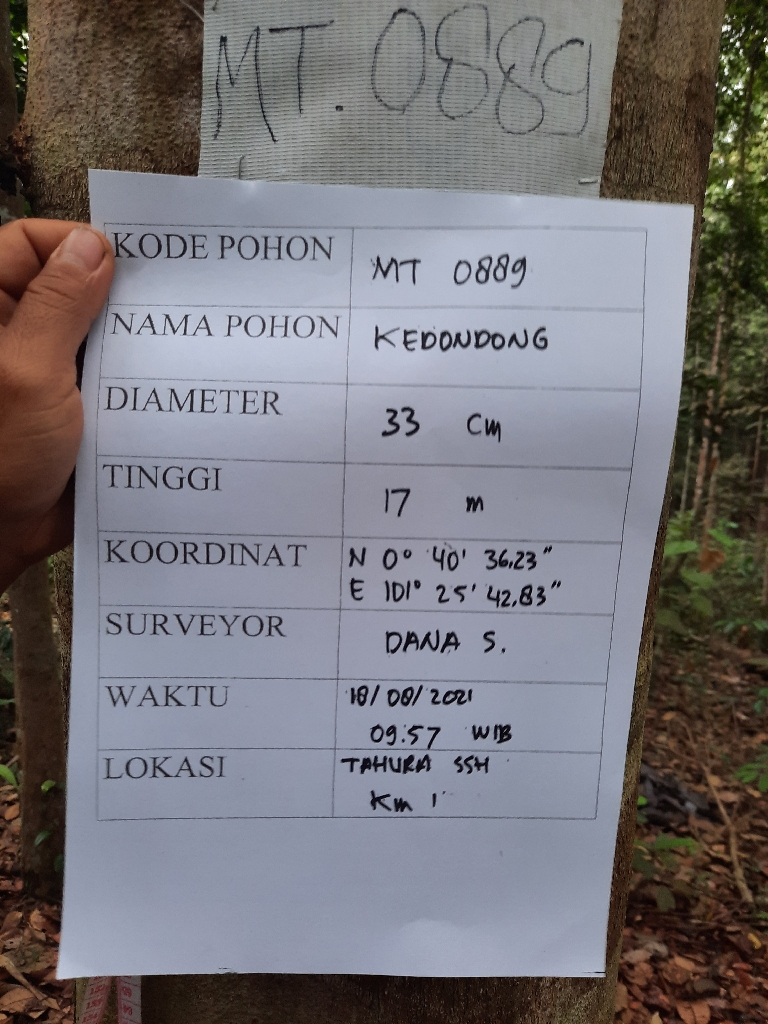 MT. 0889
KODE POHON MT 0889
NAMA POHON KEDONDONG
DIAMETER 33 Cm
TINGGI 17 m
KOORDINAT N 0° 40' 36.23"
E 101° 25' 42.83"
SURVEYOR DANA S.
WAKTU 18/08/2021
09:57 WIB
LOKASI TAHURA SSH
Km 1